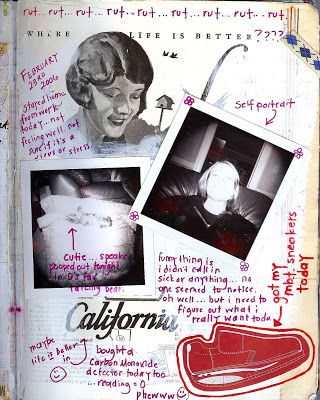 rut... rut... rut... rut... rut... rut... rut...
WHERE LIFE IS BETTER????
FEBRUARY
23rd
2006
Stayed home
from work
today... not
feeling well. not
sure if it's a
virus or stress.
Self portrait
Cutie... speake
pooped out tonight
in D's fav
talking bear.
funny thing is
i didn't call in
sick or anything... no
one seemed to notice.
oh well... but i need to
figure out what i
really want today
got my
mbt. sneakers
today
California
maybe
life is better
in
bought a
Carbon Monoxide
detector today too
... reading = 0
phewww